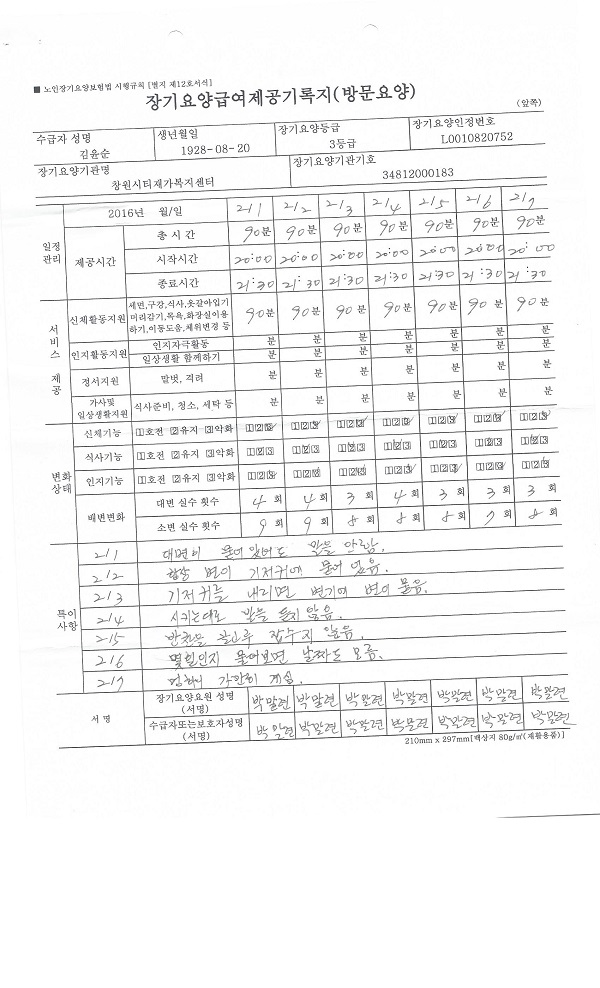 ■ 노인장기요양보험법 시행규칙 [별지 제12호서식]
장기요양급여제공기록지(방문요양)
(앞쪽)
수급자 성명 생년월일 장기요양등급 장기요양인정번호
김윤순 1928-08-20 3등급 L0010820752
장기요양기관명 장기요양기관기호
창원시티재가복지센터 34812000183
일정관리 2016년 월/일 2/1 2/2 2/3 2/4 2/5 2/6 2/7
제공시간 총 시 간 90분 90분 90분 90분 90분 90분 90분
시작시간 20:00 20:00 20:00 20:00 20:00 20:00 20:00
종료시간 21:30 21:30 21:30 21:30 21:30 21:30 21:30
서비스 제공
신체활동지원 세면,구강,식사,옷갈아입기 머리감기,목욕,화장실이용하기,이동도움,체위변경 등 90분 90분 90분 90분 90분 90분 90분
인지활동지원 인지자극활동 분 분 분 분 분 분 분
일상생활 함께하기 분 분 분 분 분 분 분
정서지원 말벗, 격려 분 분 분 분 분 분 분
가사및 일상생활지원 식사준비, 청소, 세탁 등 분 분 분 분 분 분 분
변화상태
신체기능 1호전 2유지 3악화 123 123 123 123 123 123 123
식사기능 1호전 2유지 3악화 123 123 123 123 123 123 123
인지기능 1호전 2유지 3악화 123 123 123 123 123 123 123
배변변화 대변 실수 횟수 4 회 4 회 3 회 4 회 3 회 3 회 3 회
소변 실수 횟수 9 회 9 회 8 회 8 회 8 회 9 회 8 회
특이사항
2/1 대변이 묻어 있어도 말을 안함.
2/2 항상 변이 기저귀에 묻어 있음.
2/3 기저귀를 내리면 변기에 변이 묻음.
2/4 시키는대로 말을 듣지 않음.
2/5 반찬을 골고루 잡수지 않음.
2/6 몇일인지 물어보면 날짜도 모름.
2/7 가만히 계심.
서 명 장기요양요원 성명 (서명) 박말련 박말련 박말련 박말련 박말련 박말련 박말련
수급자또는보호자성명 (서명) 박말련 박말련 박말련 박말련 박말련 박말련 박말련
210mm x 297mm[백상지 80g/㎡(재활용품)]